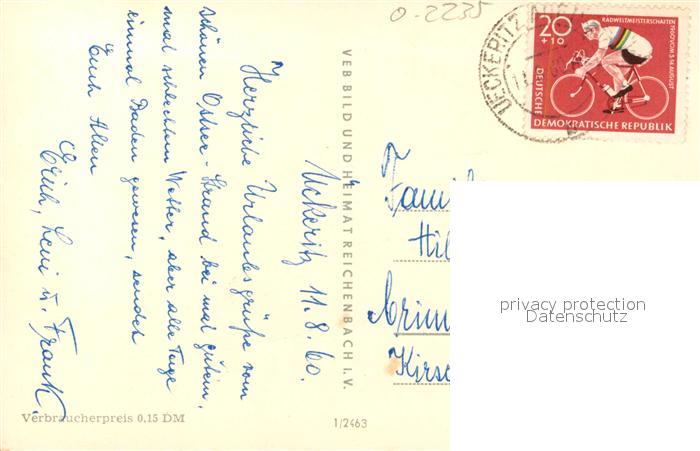 0-2235
UECKERITZ
RADWELTMEISTERSCHAFTEN
1960 VOM 3.-14. AUGUST
20
+10
DEUTSCHE
DEMOKRATISCHE REPUBLIK
Ückeritz 11.8.60.
Herzliche Urlaubsgrüße vom
schönen Ostsee-Strand bei mal gutem,
mal schlechtem Wetter, aber alle Tage
einmal Baden gewesen, sendet
Euch Allen
Erich, Leni u. Frank.
VEB BILD UND HEIMAT REICHENBACH I. V.
Famil
Hil
Crim
Kirs
privacy protection
Datenschutz
Verbraucherpreis 0,15 DM
1/2463